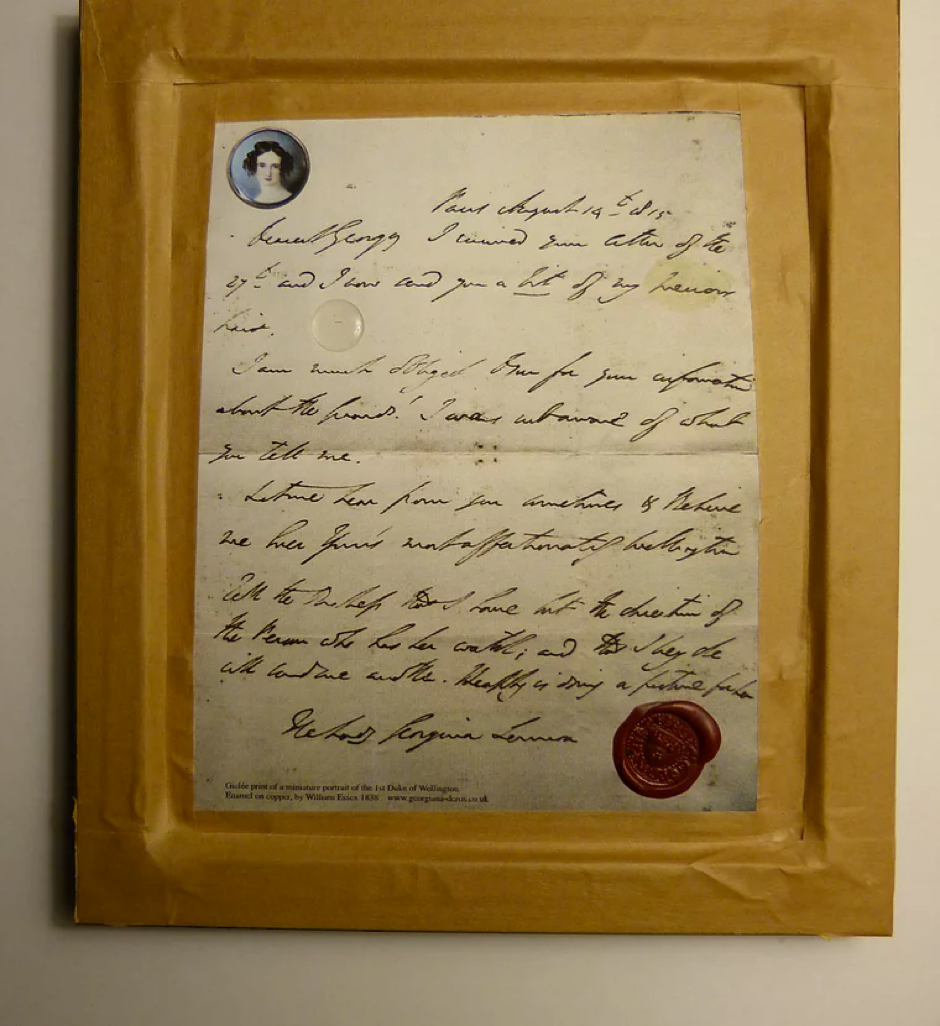 Paris August 14th 1815
Dearest Georgy I received your letter of the
27th and I now send you a bit of my
hair.
I am much obliged to you for your information
about the friends! I was not aware of what
you tell me.
Let me hear from you sometimes & Believe
me Ever Your's most affectionately Wellington
Tell the Duchess that I have sent the direction of
the Person who has her watch; and that I beg she
will send me another. Heaphy is doing a picture for her
The Lady Georgina Lennox
Giclée print of a miniature portrait of the 1st Duke of Wellington
Enamel on copper, by William Essex 1838 www.georgiana-deros.co.uk